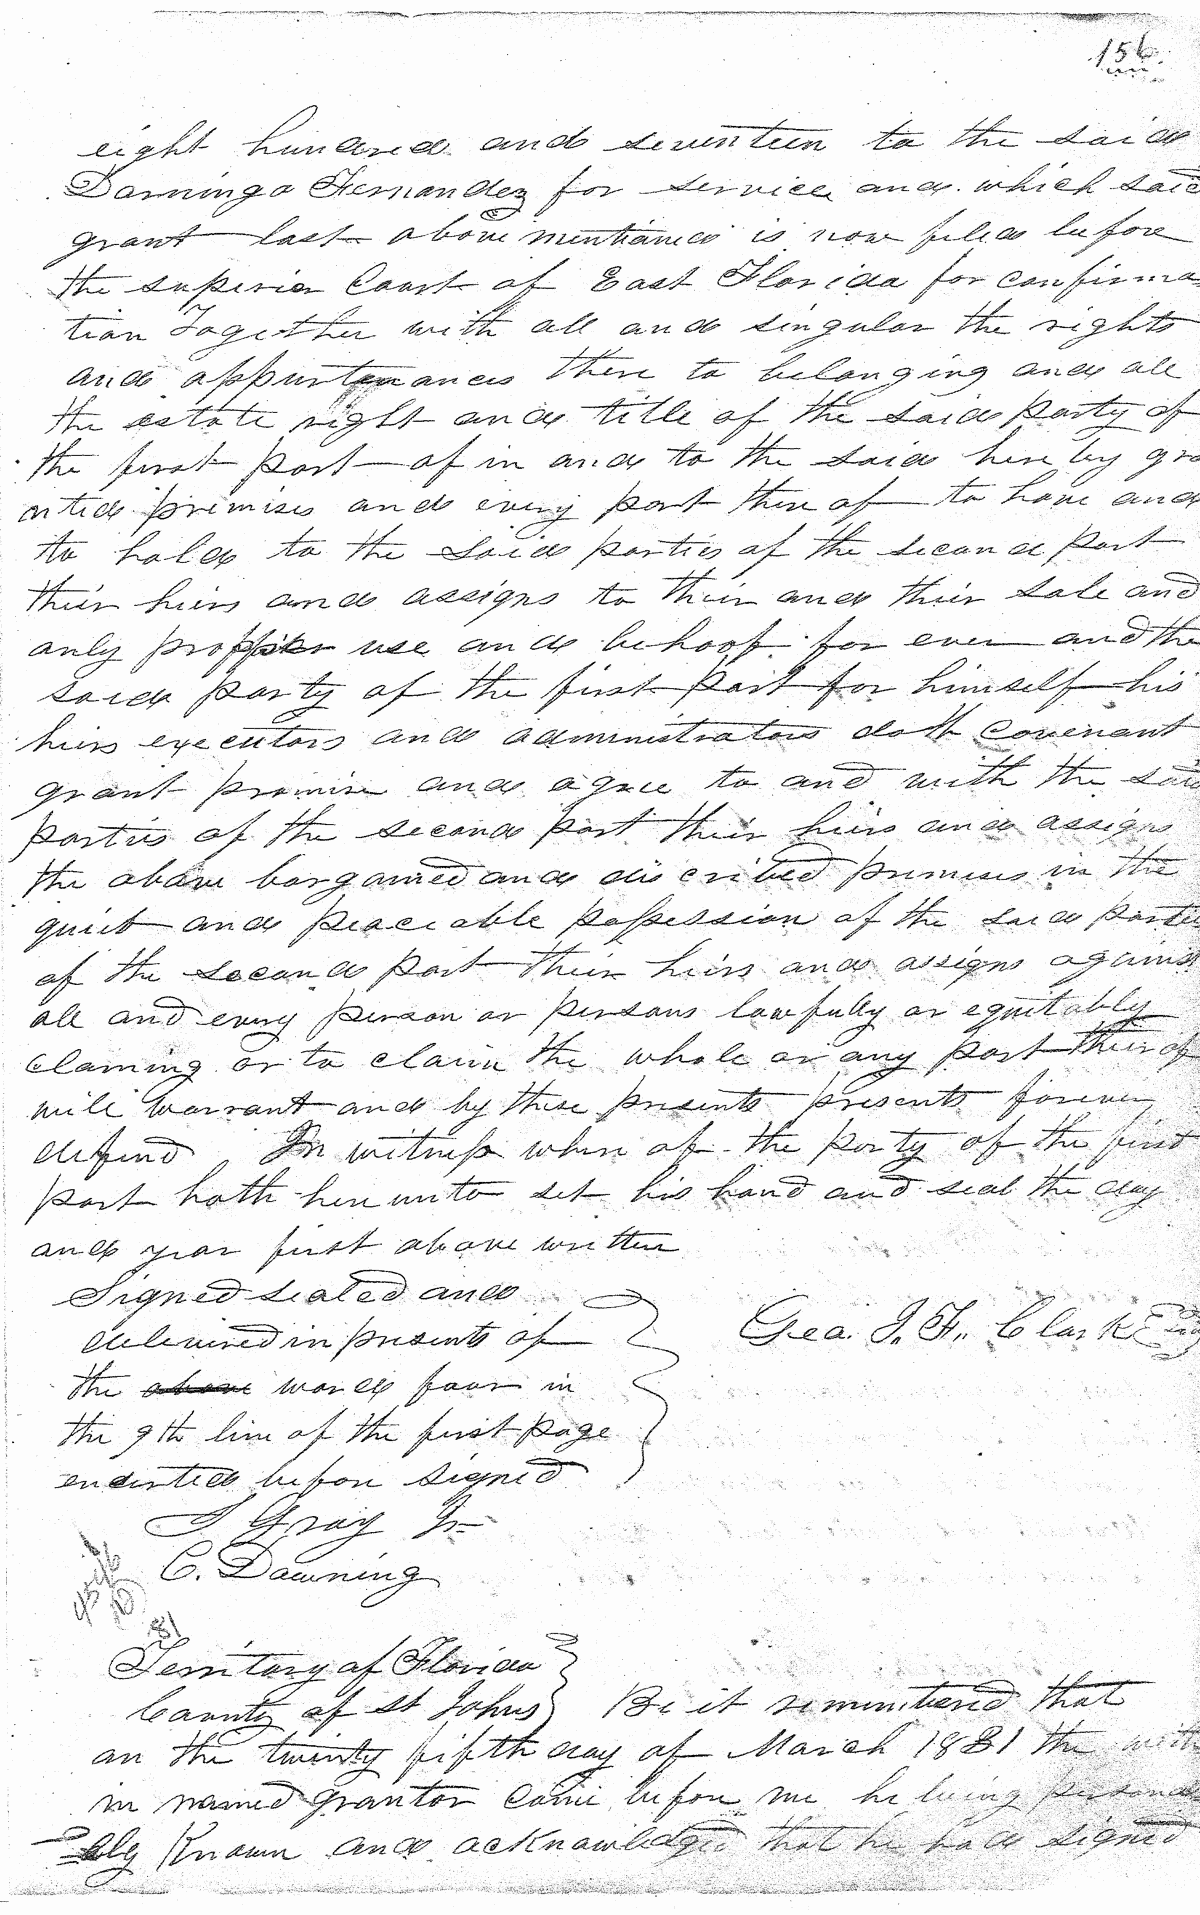 156.
eight hundred and seventeen to the said
Domingo Fernandez for service and which said
grant last above mentioned is now filed before
the superior Court of East Florida for confirma
tion Together with all and singular the rights
and appurtenances there to belonging and all
the estate right and title of the said party of
the first part of in and to the said here by gra
nted premises and every part there of to have and
to hold to the said parties of the second part
their heirs and assigns to their and their sole and
only propper use and behoof for ever and the
said party of the first part for himself his
heirs executors and administrators doth covenant
grant promise and agree to and with the said
parties of the second part their heirs and assigns
the above bargained and discribed premises in the
quiet and peaceable possession of the said parties
of the second part their heirs and assigns against
all and every person or persons lawfully or equitably
claming or to claim the whole or any part their of
will warrant and by these presents presents forever
defend In witness where of the party of the first
part hath here unto set his hand and seal the day
and year first above written
Signed sealed and
delivered in presents of
Geo. J. F. Clark
the above words four in
the 9th line of the first page
enserted before signed
S Gray Jr
C. Downing
81
Territory of Florida
County of St Johns Be it remembered that
on the twenty fifth day of March 1831 the with
in named grantor came before me he being persona
lly Known and acknowledged that he had signed